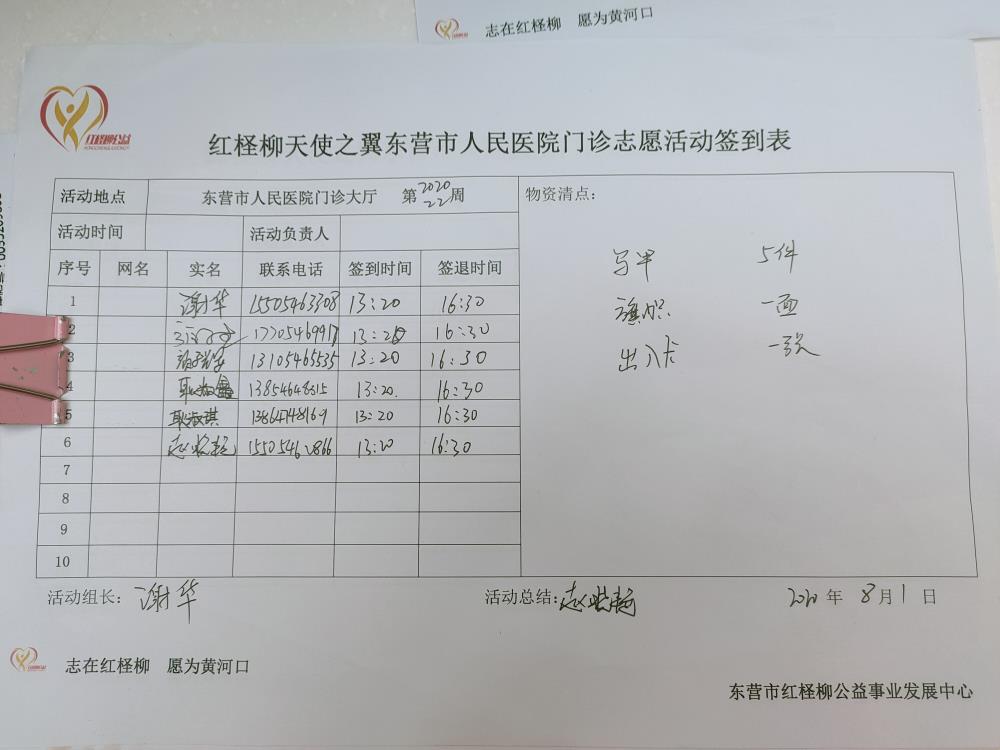 志在红柽柳 愿为黄河口
红柽柳公益
红柽柳天使之翼东营市人民医院门诊志愿活动签到表
活动地点 东营市人民医院门诊大厅 第2020 22周 物资清点:
活动时间 活动负责人
序号 网名 实名 联系电话 签到时间 签退时间
马甲 5件
旗帜 一面
出入卡 一张
1 谢华 15505463308 13:20 16:30
2 13:20 16:30
3 13105465535 13:20 16:30
4 13:20. 16:30
5 耿淑琪 13:20 16:30
6 13:20 16:30
7
8
9
10
活动组长: 谢华 活动总结: 2020年 8月1日
志在红柽柳 愿为黄河口
东营市红柽柳公益事业发展中心